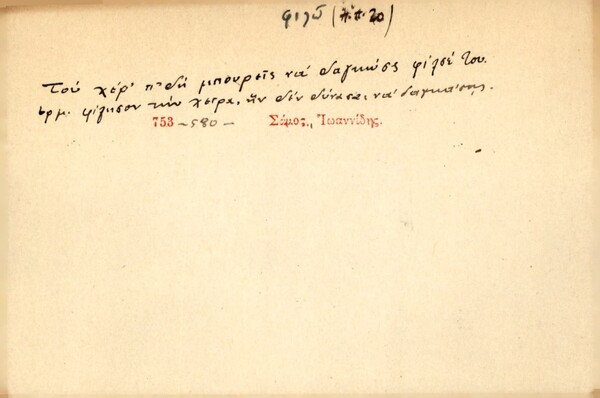 φιλῶ (π.π. 20)
Τοὺ χέρ' π' δὲ μπουρεῖς νὰ δαγκώσῃς φίλσέ του.
ἑρμ. φίλησον τὴν χεῖρα, ἣν δὲν δύνασαι νὰ δαγκάσῃς.
753 - 580 - Σάμος, Ἰωαννίδης.